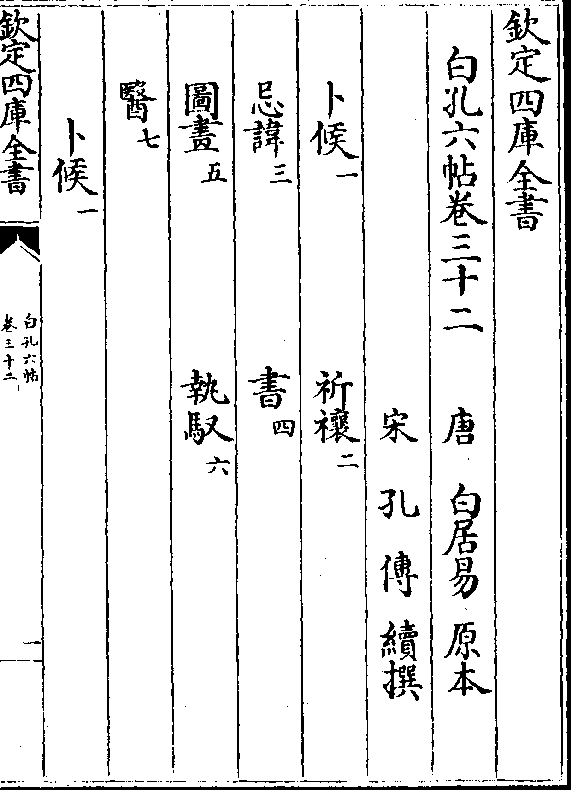 欽定四庫全書
白孔六帖卷三十二　唐　白居易　原本
宋　孔　傳　續撰
卜候一　祈禳二
忌諱三　書四
圖畫五　執馭六
醫七
卜候一
欽定四庫全書
白孔六帖
卷三十二
一